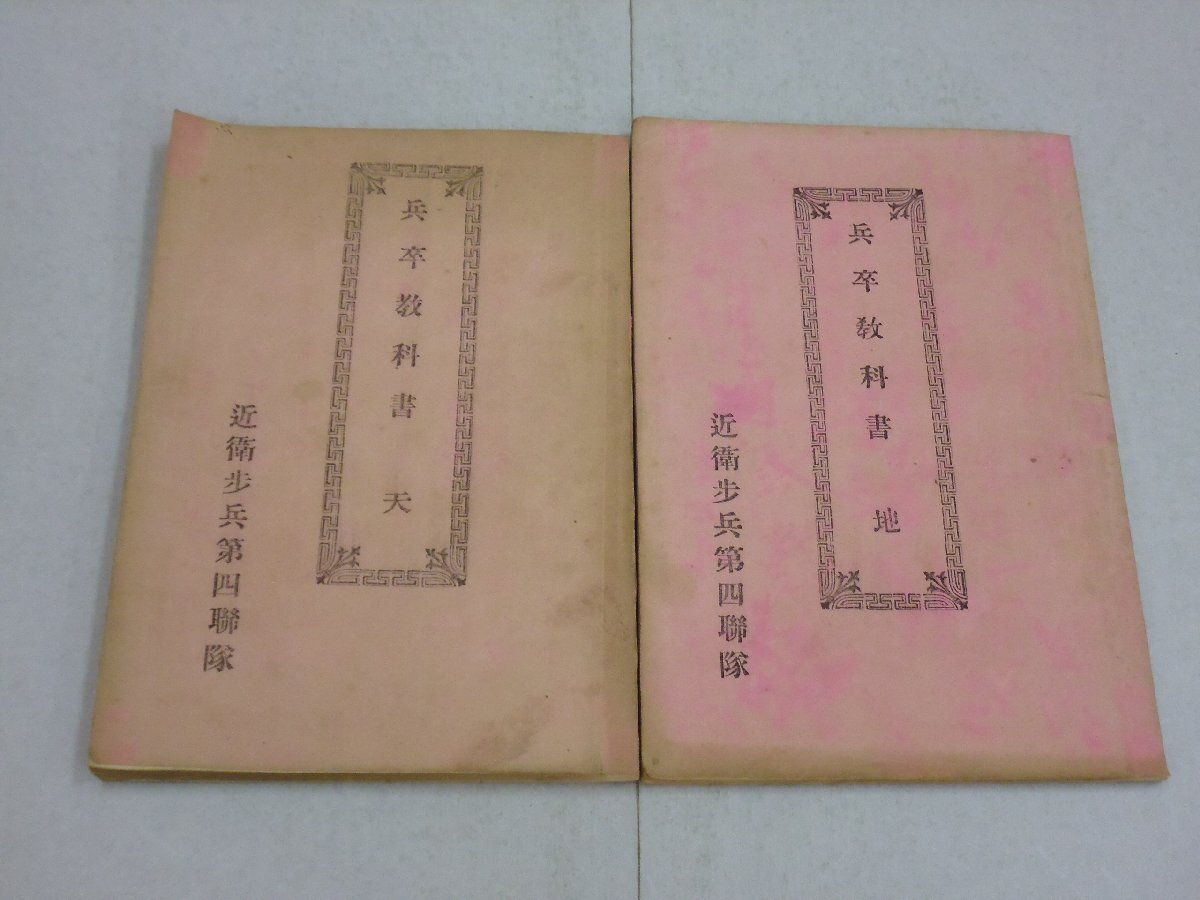 兵卒教科書 天
近衛歩兵第四聯隊
兵卒教科書 地
近衛歩兵第四聯隊